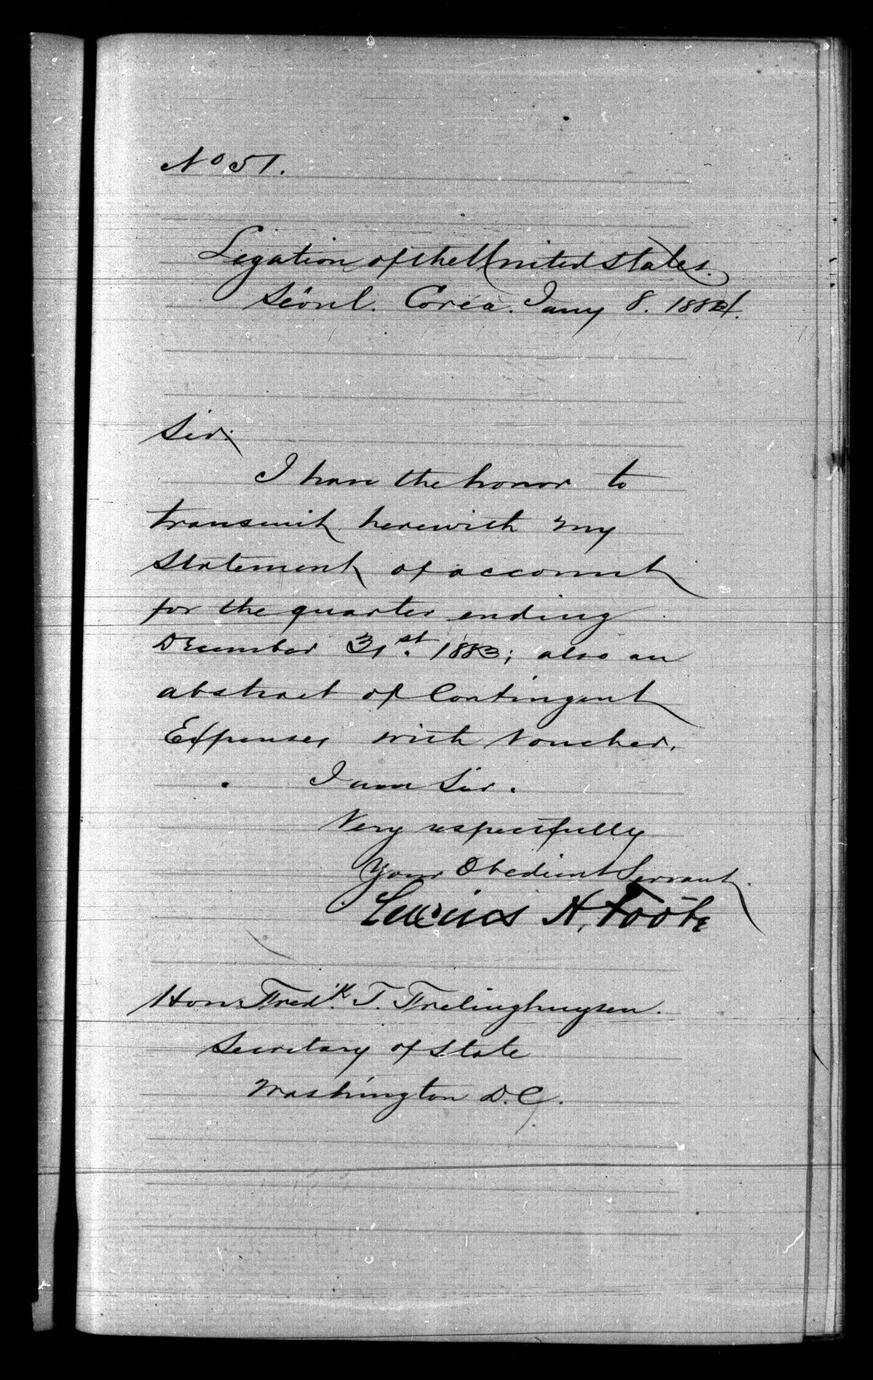 No 51.
Legation of the United States.
Séoul. Corea. Jany 8. 1884.
Sir.
I have the honor to
transmit herewith my
Statement of account
for the quarter ending
December 31st. 1883; also an
abstract of Contingent
Expenses with Voucher.
I am Sir.
Very respectfully
Your Obedient Servant.
Lucius H. Foote
Hon. Fred'k. T. Frelinghuysen.
Secretary of State
Washington D.C.